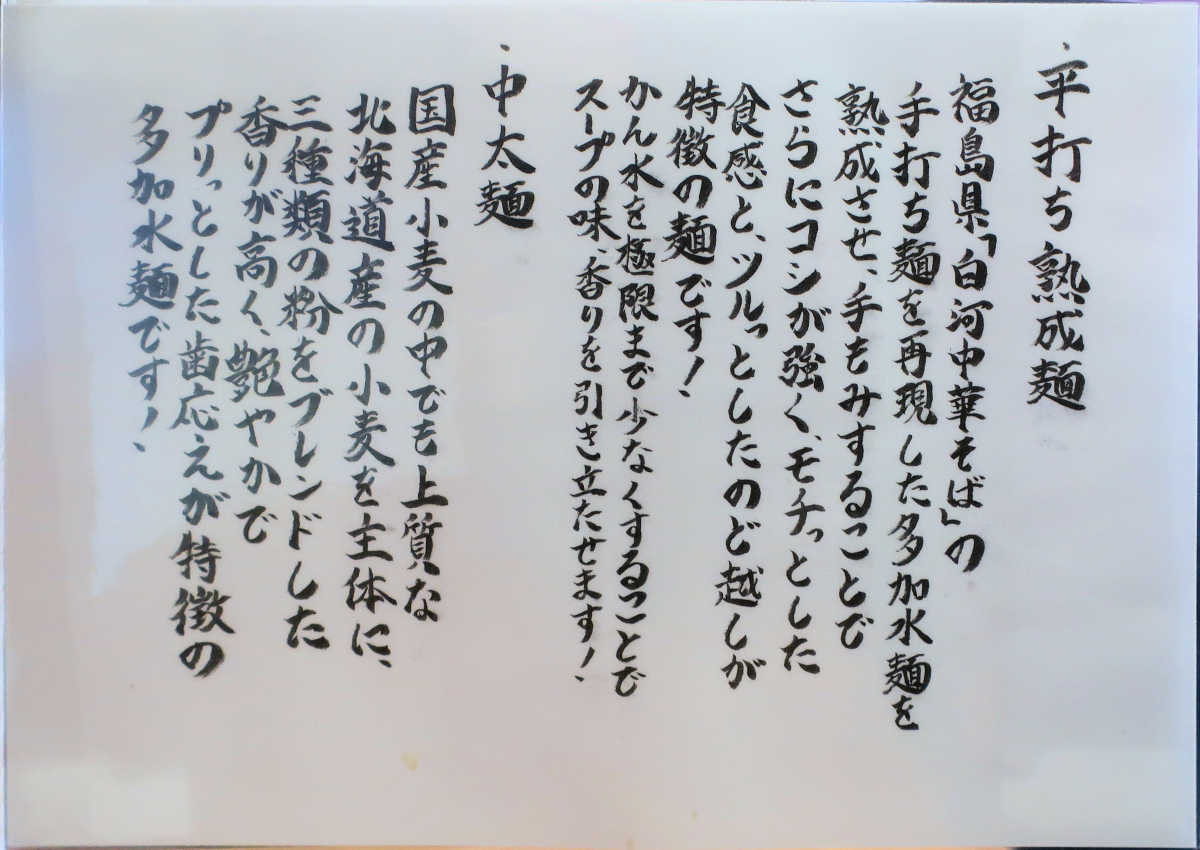 ・平打ち熟成麺
福島県「白河中華そば」の
手打ち麺を再現した多加水麺を
熟成させ、手もみすることで
さらにコシが強く、モチっとした
食感と、ツルっとしたのど越しが
特徴の麺です!
かん水を極限まで少なくすることで
スープの味、香りを引き立たせます!
・中太麺
国産小麦の中でも上質な
北海道産の小麦を主体に、
三種類の粉をブレンドした
香りが高く、艶やかで
プリっとした歯応えが特徴の
多加水麺です!